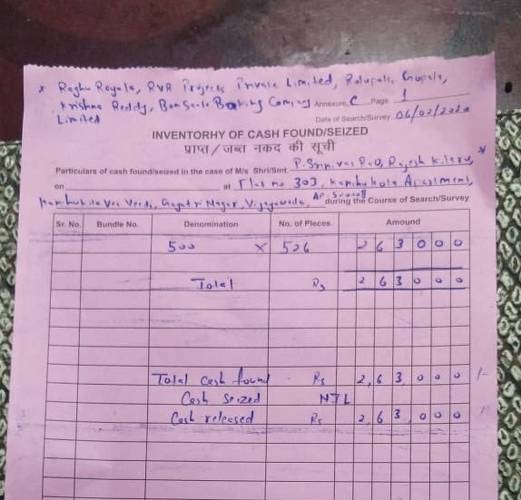 * Raghu Royala, RVR Projects Private Limited, Polupals, Gopala,
Krishna Reddy, Bonsuite Baking Company
Limited
Annexure, C Page 1
Date of Search/Survey 06/02/2020
INVENTORHY OF CASH FOUND/SEIZED
प्राप्त / जब्त नकद की सूची
Particulars of cash found/seized in the case of M/s Shri/Smt. P. Srinivas Rao, Rajesh Kilaru, *
on at Flat no 303, Kamakhala Apartment,
Gayatri Nagar, Vijayawada, AP during the Course of Search/Survey
Sr. No. Bundle No. Denomination No. of Pieces Amount
500 × 526 263000
Total Rs 263000
Total Cash found Rs 2,63,000 /-
Cash Seized NIL
Cash released Rs 2,63,000 /-